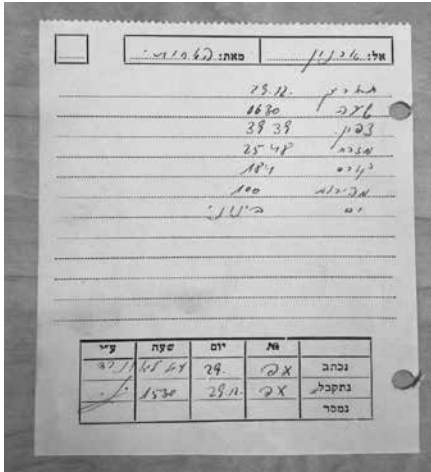 אל: ארנון מאת:
תאריך 29.12.
שעה 1630
צפון 39 39
מזרח 25 48
קורס 184
מהירות 100
ים בינוני
№ יום שעה ע״י
נכתב 29.
נתקבל 29.12. 1530
נמסר